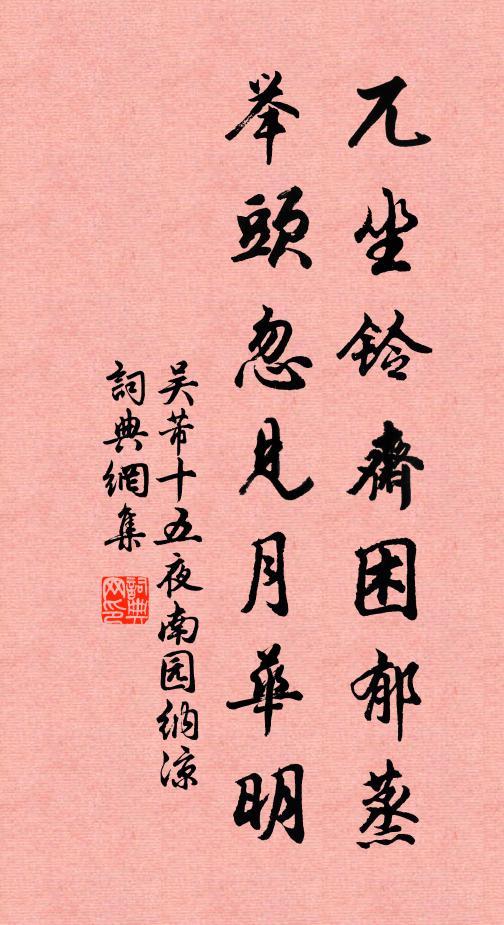 兀坐铃齋困郁蒸
举頭忽见月華明
吴芾十五夜南园纳凉
詞典網集
詞典網印